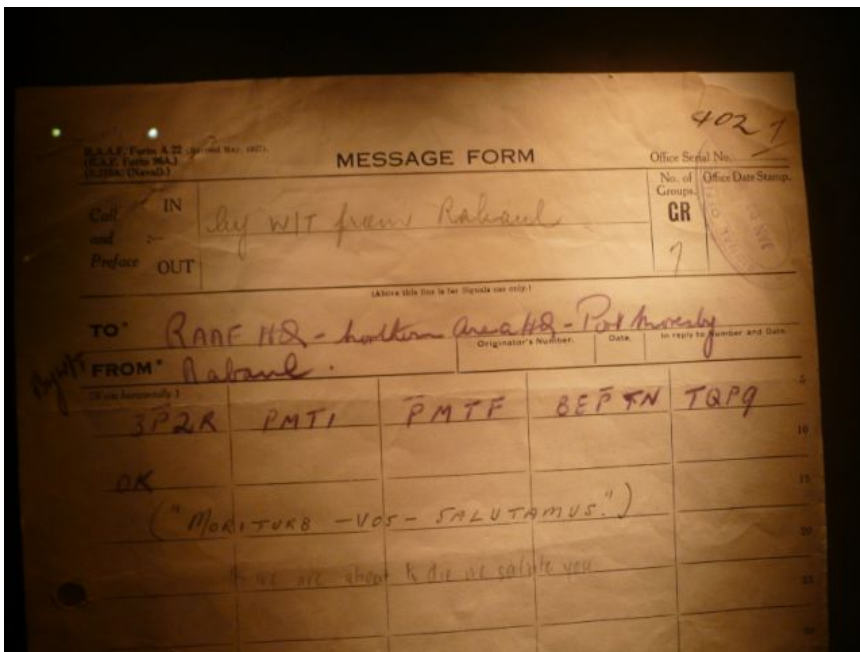 4027
R.A.A.F. Form A 22 (Revised May, 1937).
(R.A.F. Form 96A.)
(S.1320A (Naval).)
MESSAGE FORM
Office Serial No.
No. of Groups.
Office Date Stamp.
GR
7
Call and Preface
IN
OUT
by W/T from Rabaul
(Above this line is for Signals use only.)
TO RAAF HQ - Northern Area HQ - Port Moresby
Originator's Number.
Date.
In reply to Number and Date.
By W/T
FROM Rabaul.
(Write horizontally)
3P2R PMT1 PMTF BEP TN TQP9
5
10
OK
15
("MORITURB -VOS- SALUTAMUS.")
20
we are about to die we salute you
25